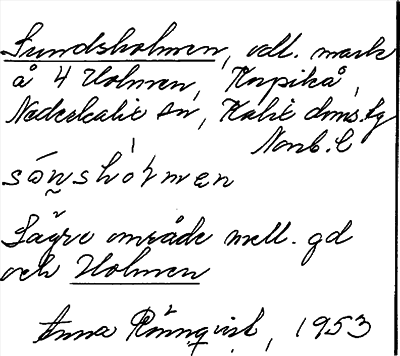 Sundsholmen, odl. mark
å 4 Holmen, Korpikå,
Nederkalix sn, Kalix dms.lg
Norrb. l
són̰sholmen
Lägre område mell. gd
och Holmen
Anna Rönnqvist, 1953